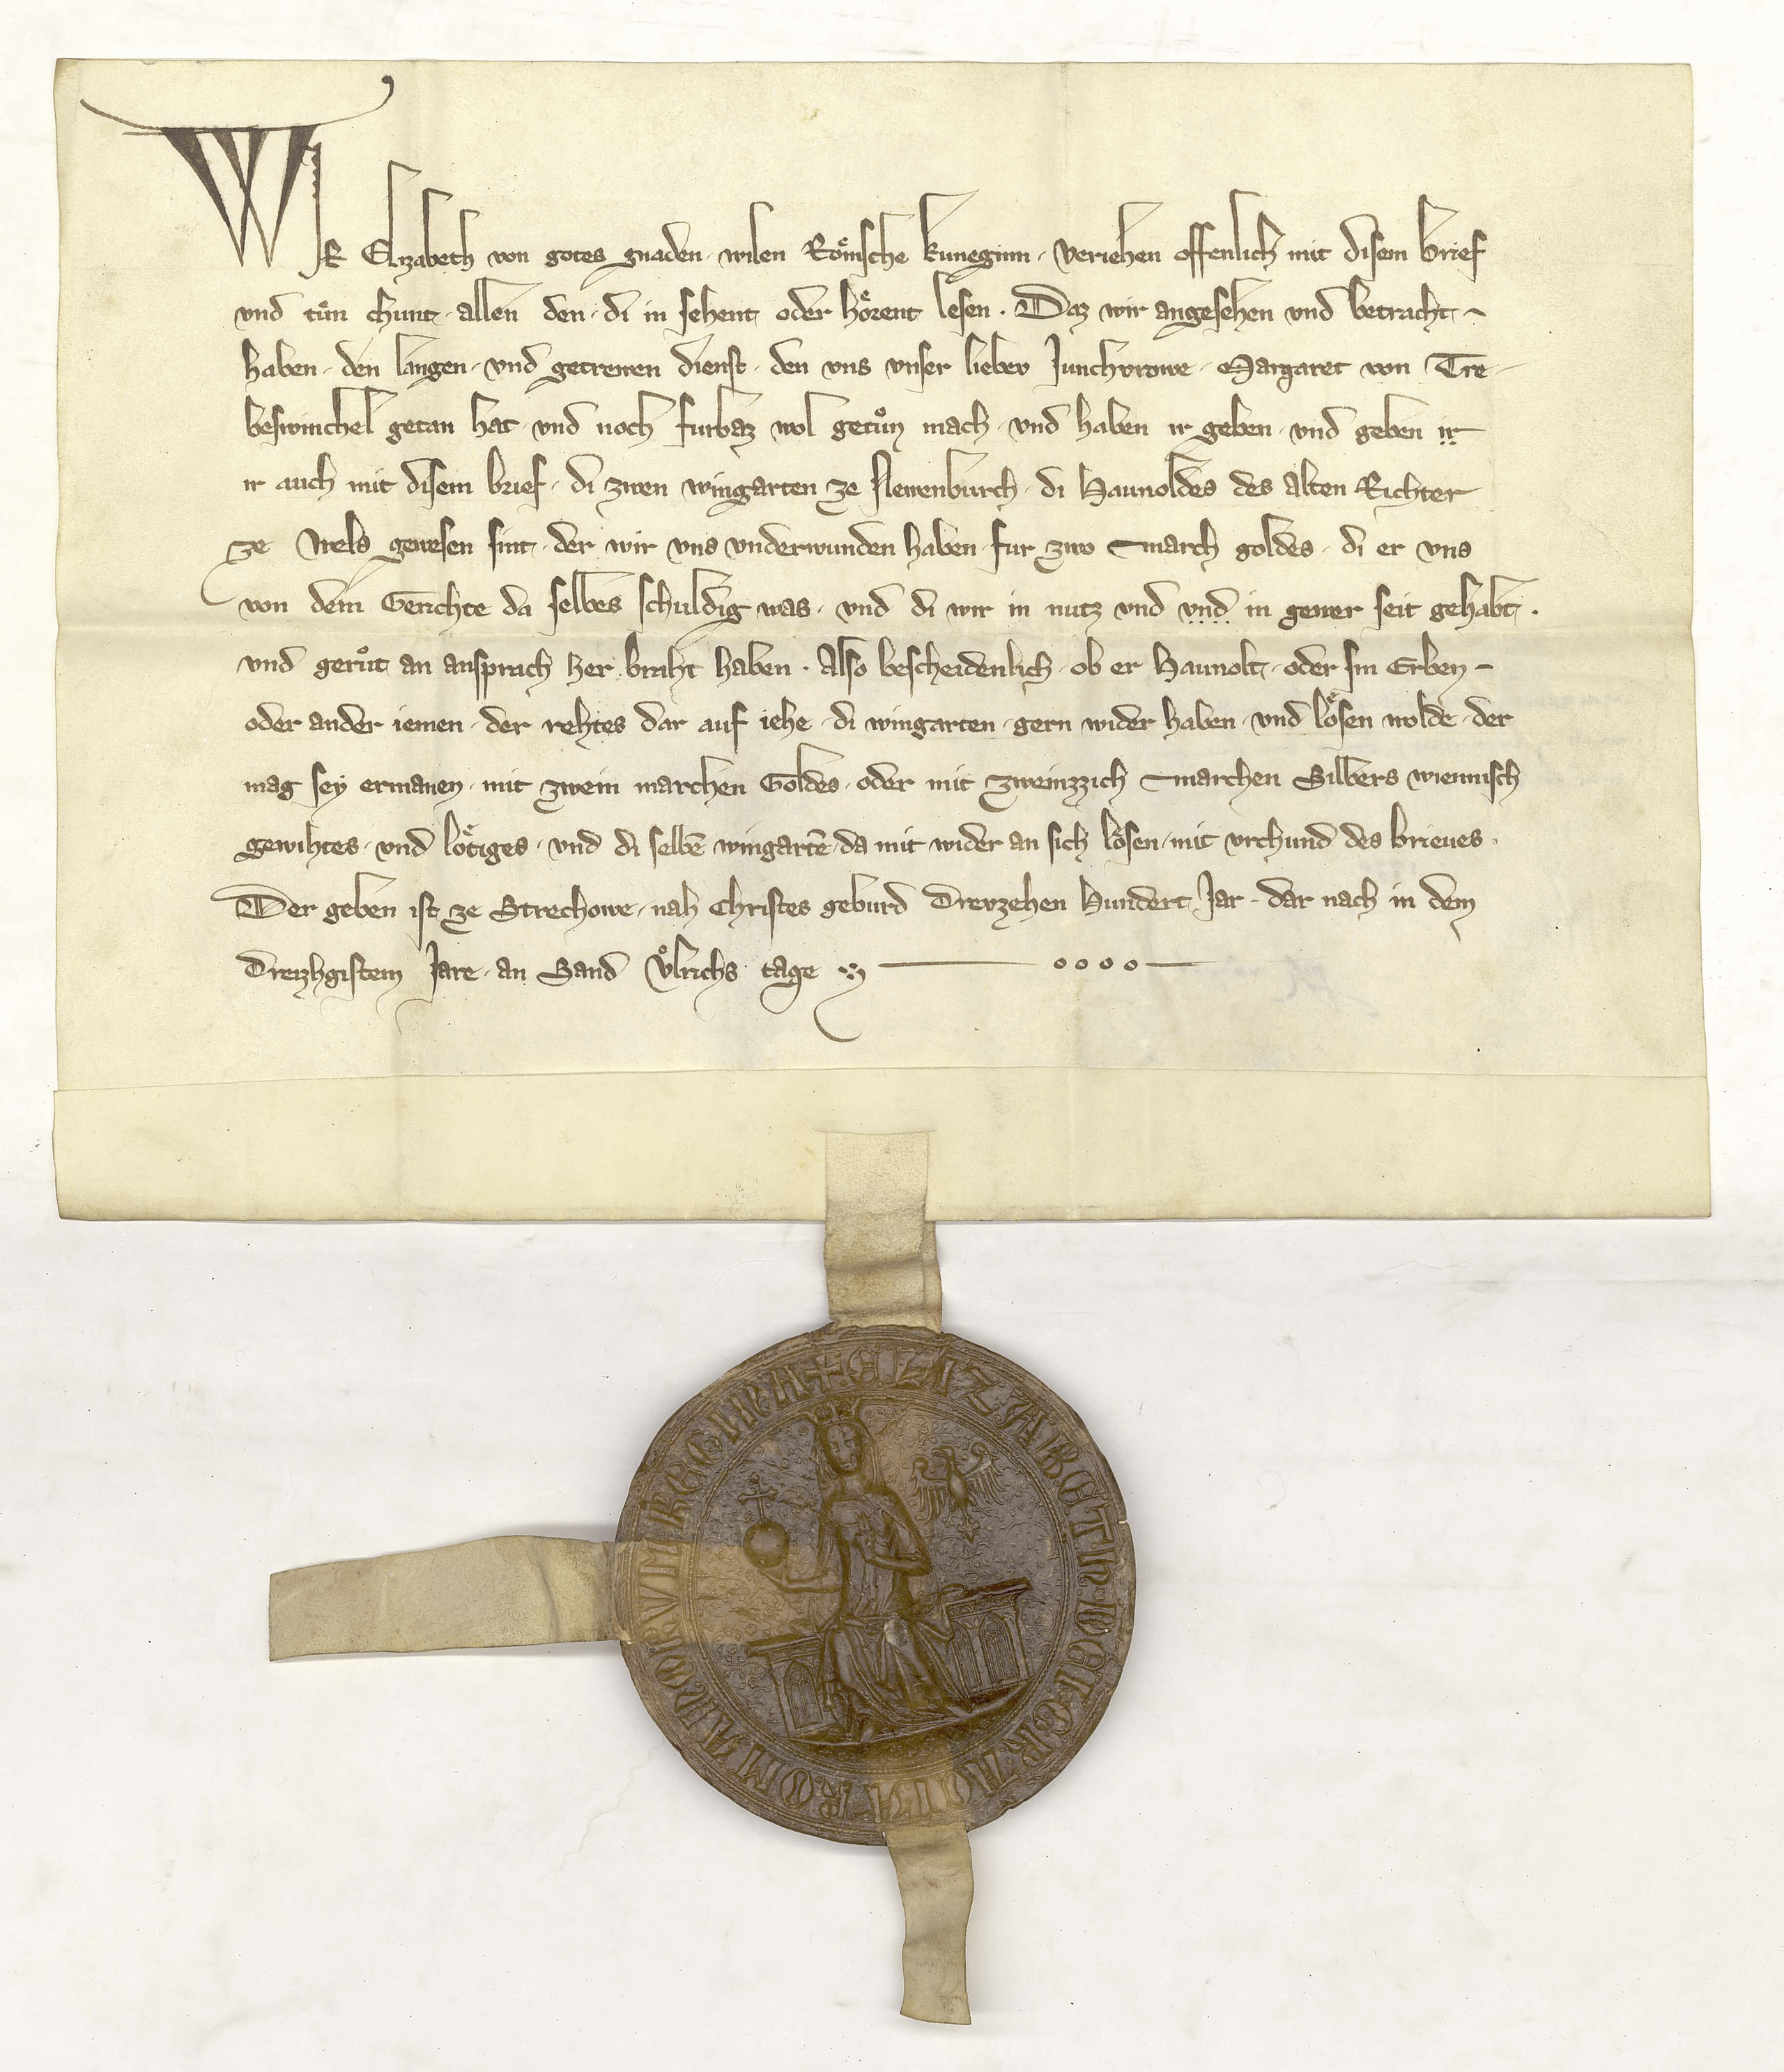 WIR Elyzabeth von gotes gnaden · wilen Roͤmsche kuneginn · veriehen offenlich mit disem brief
vnd tuͤn chunt · allen den · di in sehent oder hoͤrent lesen · Daz wir angesehen vnd betracht
haben · den langen · vnd getrewen dienst · den vns vnser liebev Junchvrowe · Margaret von Tre
beswinchel getan hat · vnd noch furbaz wol getuͦn mach · vnd haben ir geben · vnd geben ir
ir auch mit disem brief · di zwen wingarten ze Newenburch · di Haunoldes des alten Richter
ze Wels gewesen sint · der wir vns vnderwunden haben · fur zwo march goldes · di er vns
von dem Gerichte da selbes schuldig was · vnd di wir in nutz vnd vnd in gewer seit gehabt ·
vnd geruͦt an ansprach her braht haben · Also bescheidenlich · ob er Haunolt · oder sin Erben
oder ander iemen · der rehtes dar auf iehe · di wingarten · gern wider haben · vnd loͤsen wolde · der
mag sey ermanen · mit zwein marchen Goldes · oder mit zweinzzich marchen Silbers wiennisch
gewihtes · vnd loͤtiges · vnd di selbē wingartē · da mit wider an sich loͤsen · mit vrchund des brieues ·
Der geben ist ze Strechowe · nah Christes geburd Drevzehen Hundert Jar · dar nach in dem
Dreizhgistem Jare · an Sand Vͦlrichs tage
+ ELIZABETH · DEI · GRACIA · ROMANORVM REGINA